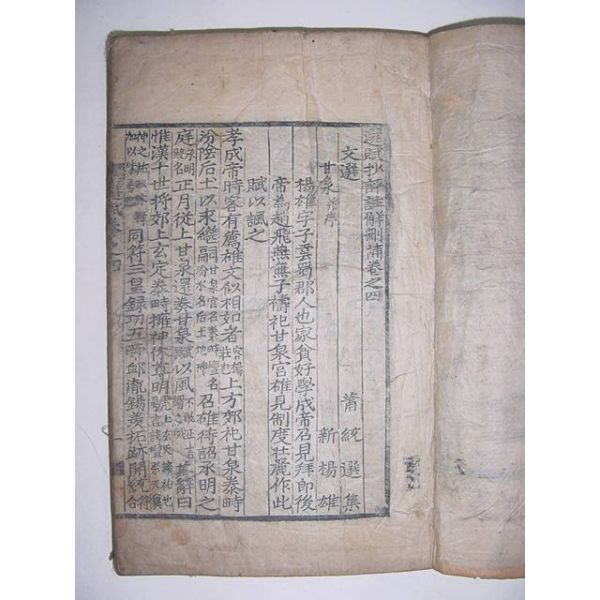 選賦抄評註解刪補卷之四
文選 蕭統選集
甘泉賦并序 新楊雄
楊雄字子雲蜀郡人也家貧好學成帝召見拜郎後
帝為趙飛燕無子禱祀甘泉宮雄見制度壯麗作此
賦以諷之
孝成帝時客有薦雄文似相如者 上方郊祀甘泉泰畤
汾陰后土以求繼嗣 召雄待詔承明之
庭 正月從上甘泉還奏甘泉賦以風 其辭曰
惟漢十世將郊上玄定泰畤擁神休尊明號
同符三皇錄功五帝卹胤錫羨拓跡開統